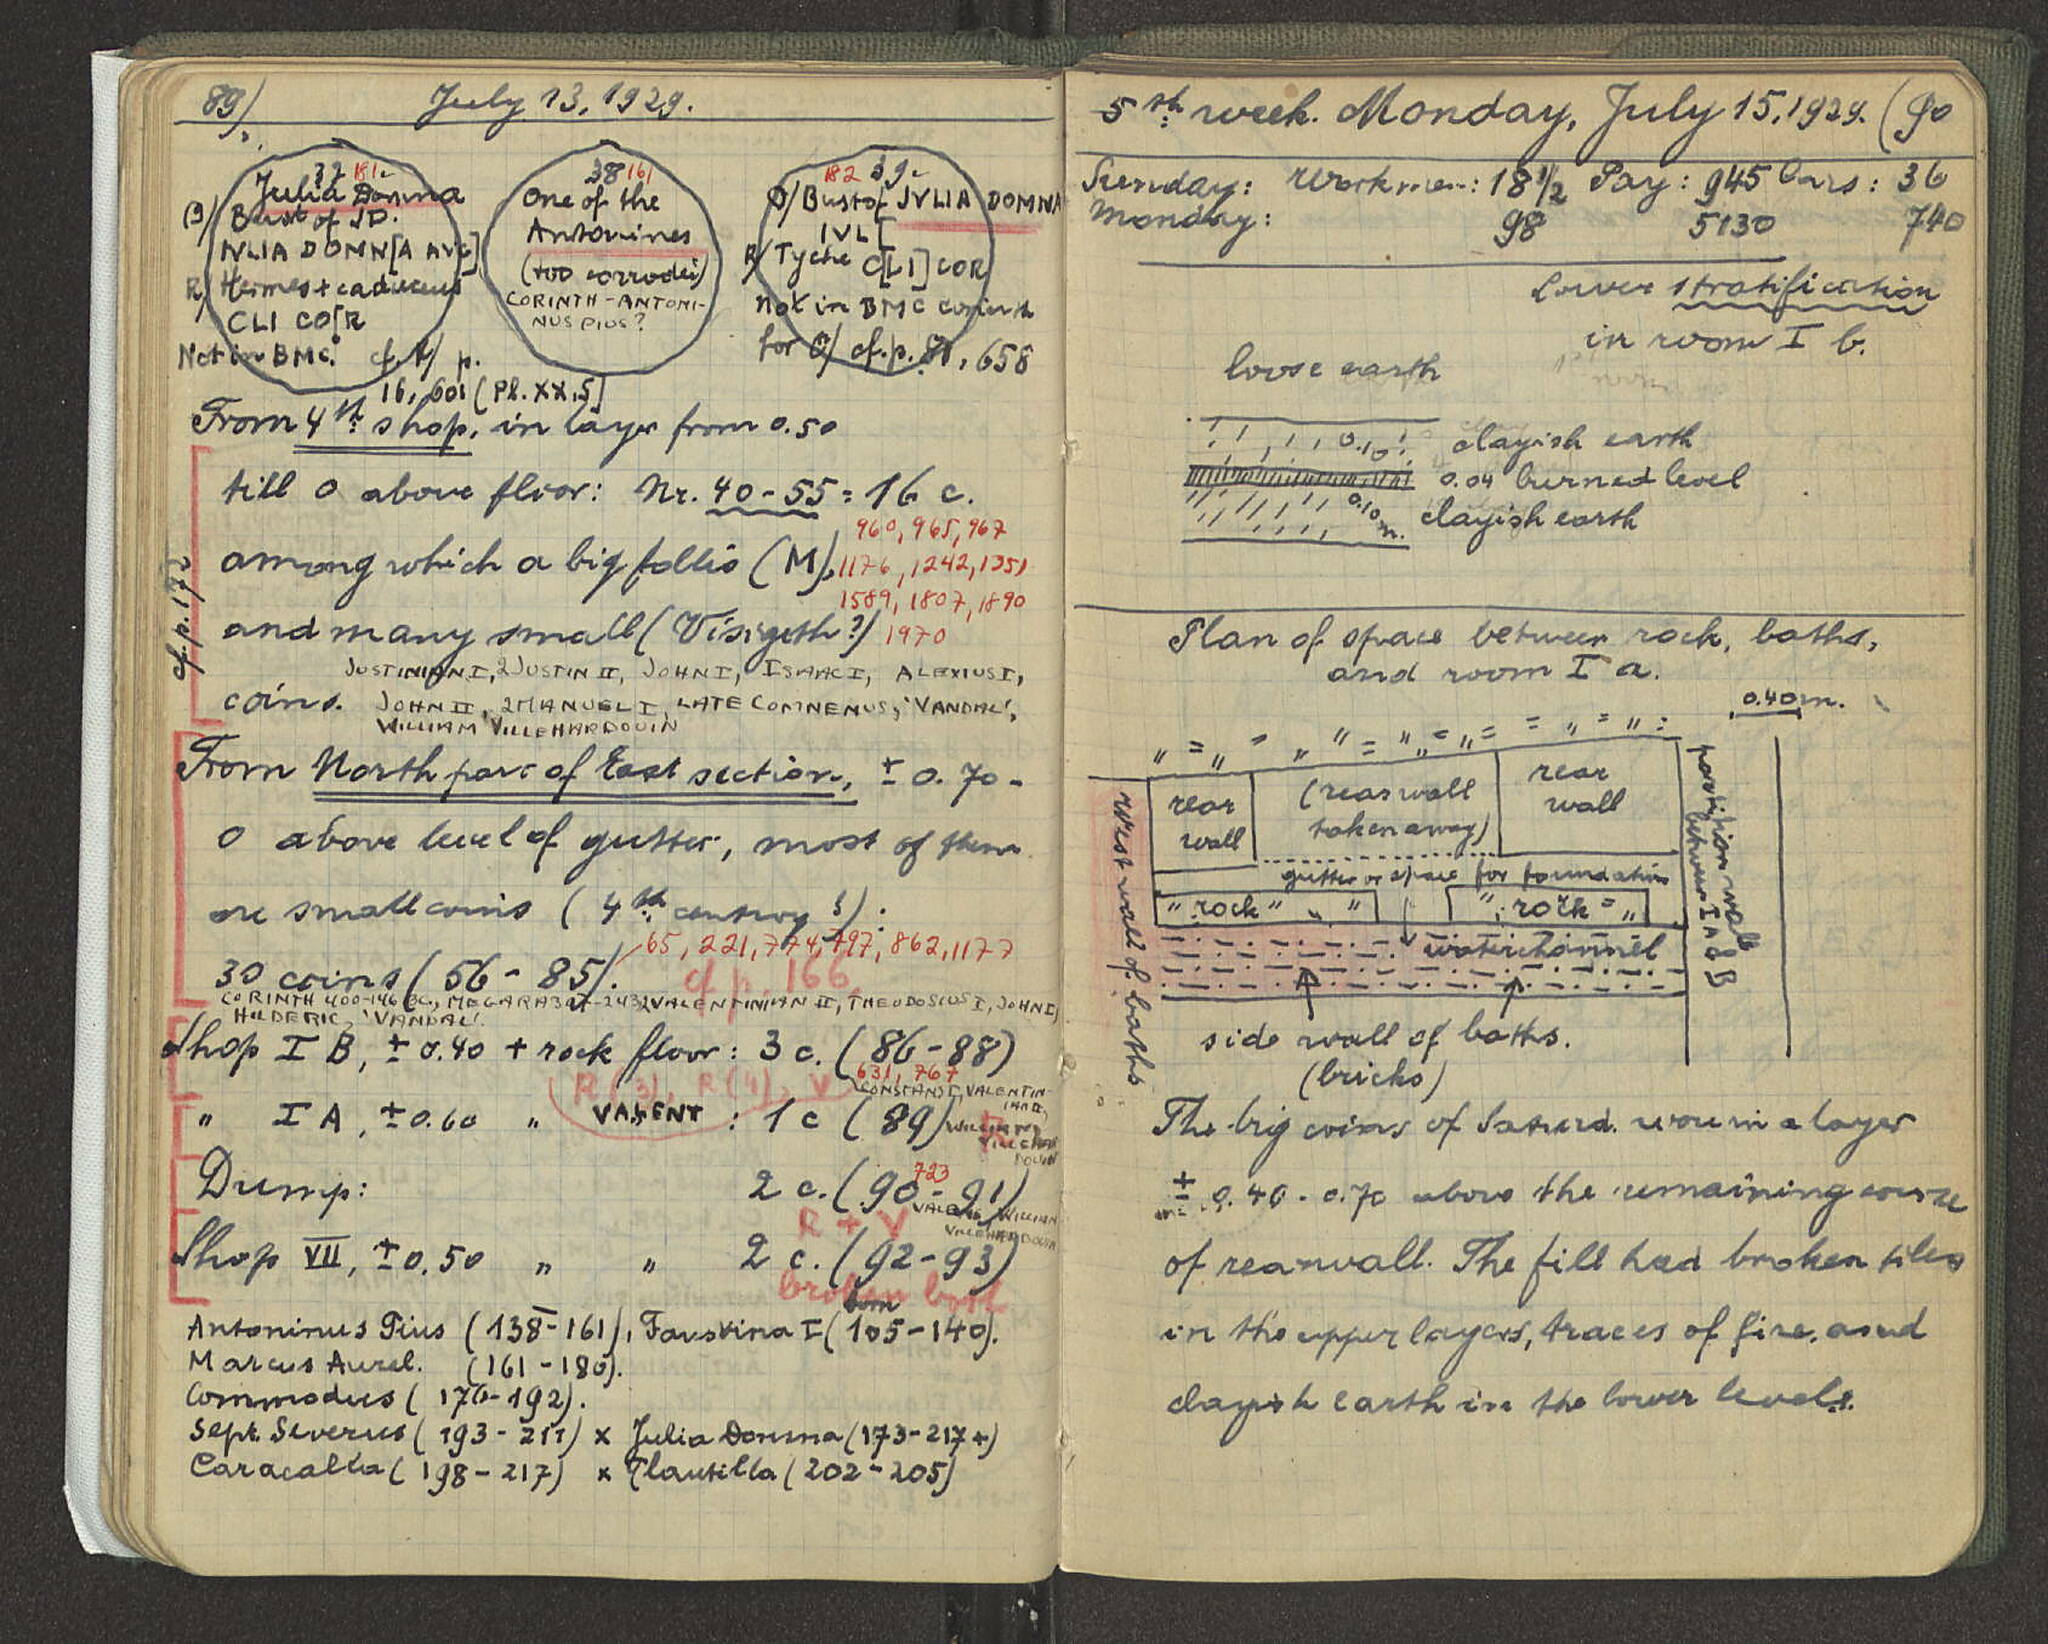 89)
July 13, 1929.
37 181.
Julia Domna
Bust of JD.
IVLIA DOMN[A AVG]
R/ Hermes + caduceus
CLI CO[R
Not in BMC. cf. R/ p.
16, 601 (Pl. XX,5)
38 161
One of the
Antonines
(too corroded)
CORINTH - ANTONI-
NUS PIUS?
182 39.
O/ Bust of JVLIA DOMNA
IVL[
R/ Tyche C[LI] COR
Not in BMC Corinth
for O/ cf. p. 81, 658
From 4th shop, in layer from 0.50
till 0 above floor: Nr. 40-55 = 16 c.
960, 965, 967
among which a big follis (M), 1176, 1242, 1351
1589, 1807, 1890
and many small (Visigoth?) 1970
JUSTINIAN I, 2 JUSTIN II, JOHN I, ISAAC I, ALEXIUS I,
coins. JOHN II, 2 MANUEL I, LATE COMNENUS, 'VANDAL',
WILLIAM VILLEHARDOUIN
cf. p. 172
From North part of East section, ± 0.70 -
0 above level of gutter, most of them
are small coins (4th century?):
65, 221, 774, 797, 862, 1177
30 coins (56 - 85). cf p. 166
CORINTH 400-146 BC, MEGARA 307-243, 2 VALENTINIAN II, THEODOSIUS I, JOHN I,
HILDERIC, 'VANDAL'.
Shop I B, ± 0.40 + rock floor: 3 c. (86-88)
631, 767
R (3), R (4), V
CONSTANS I, VALENTIN-
IAN II,
WILLIAM
VILLEHAR
DOUIN
" I A, ± 0.60 " VALENT : 1 c (89)
723
Dump: 2 c. (90 - 91)
VALENS, WILLIAM
VILLEHARDOUIN
R + V
Shop VII, ± 0.50 " " 2 c. (92-93)
broken both
born
Antoninus Pius (138-161), Faustina I (105-140).
Marcus Aurel. (161-180).
Commodus (176-192).
Sept. Severus (193-211) x Julia Domna (173-217+)
Caracalla (198-217) x Plautilla (202-205)
5th week. Monday, July 15, 1929. (90
Sunday: Workmen: 18 1/2 Pay: 945 Cars: 36
Monday: 98 5130 740
Lower stratification
in room I b.
loose earth
0.10 clayish earth
0.04 burned level
0.10 m. clayish earth
Plan of space between rock, baths,
and room I a.
0.40 m.
rear
wall
(rear wall
taken away)
rear
wall
gutter or space for foundation
" rock " " "
" rock = "
waterchannel
west wall of baths
partition wall
between I A & B
side wall of baths.
(bricks)
The big coins of Saturd. were in a layer
± 0.40 - 0.70 above the remaining course
of rearwall. The fill had broken tiles
in the upper layers, traces of fire, and
clayish earth in the lower levels.